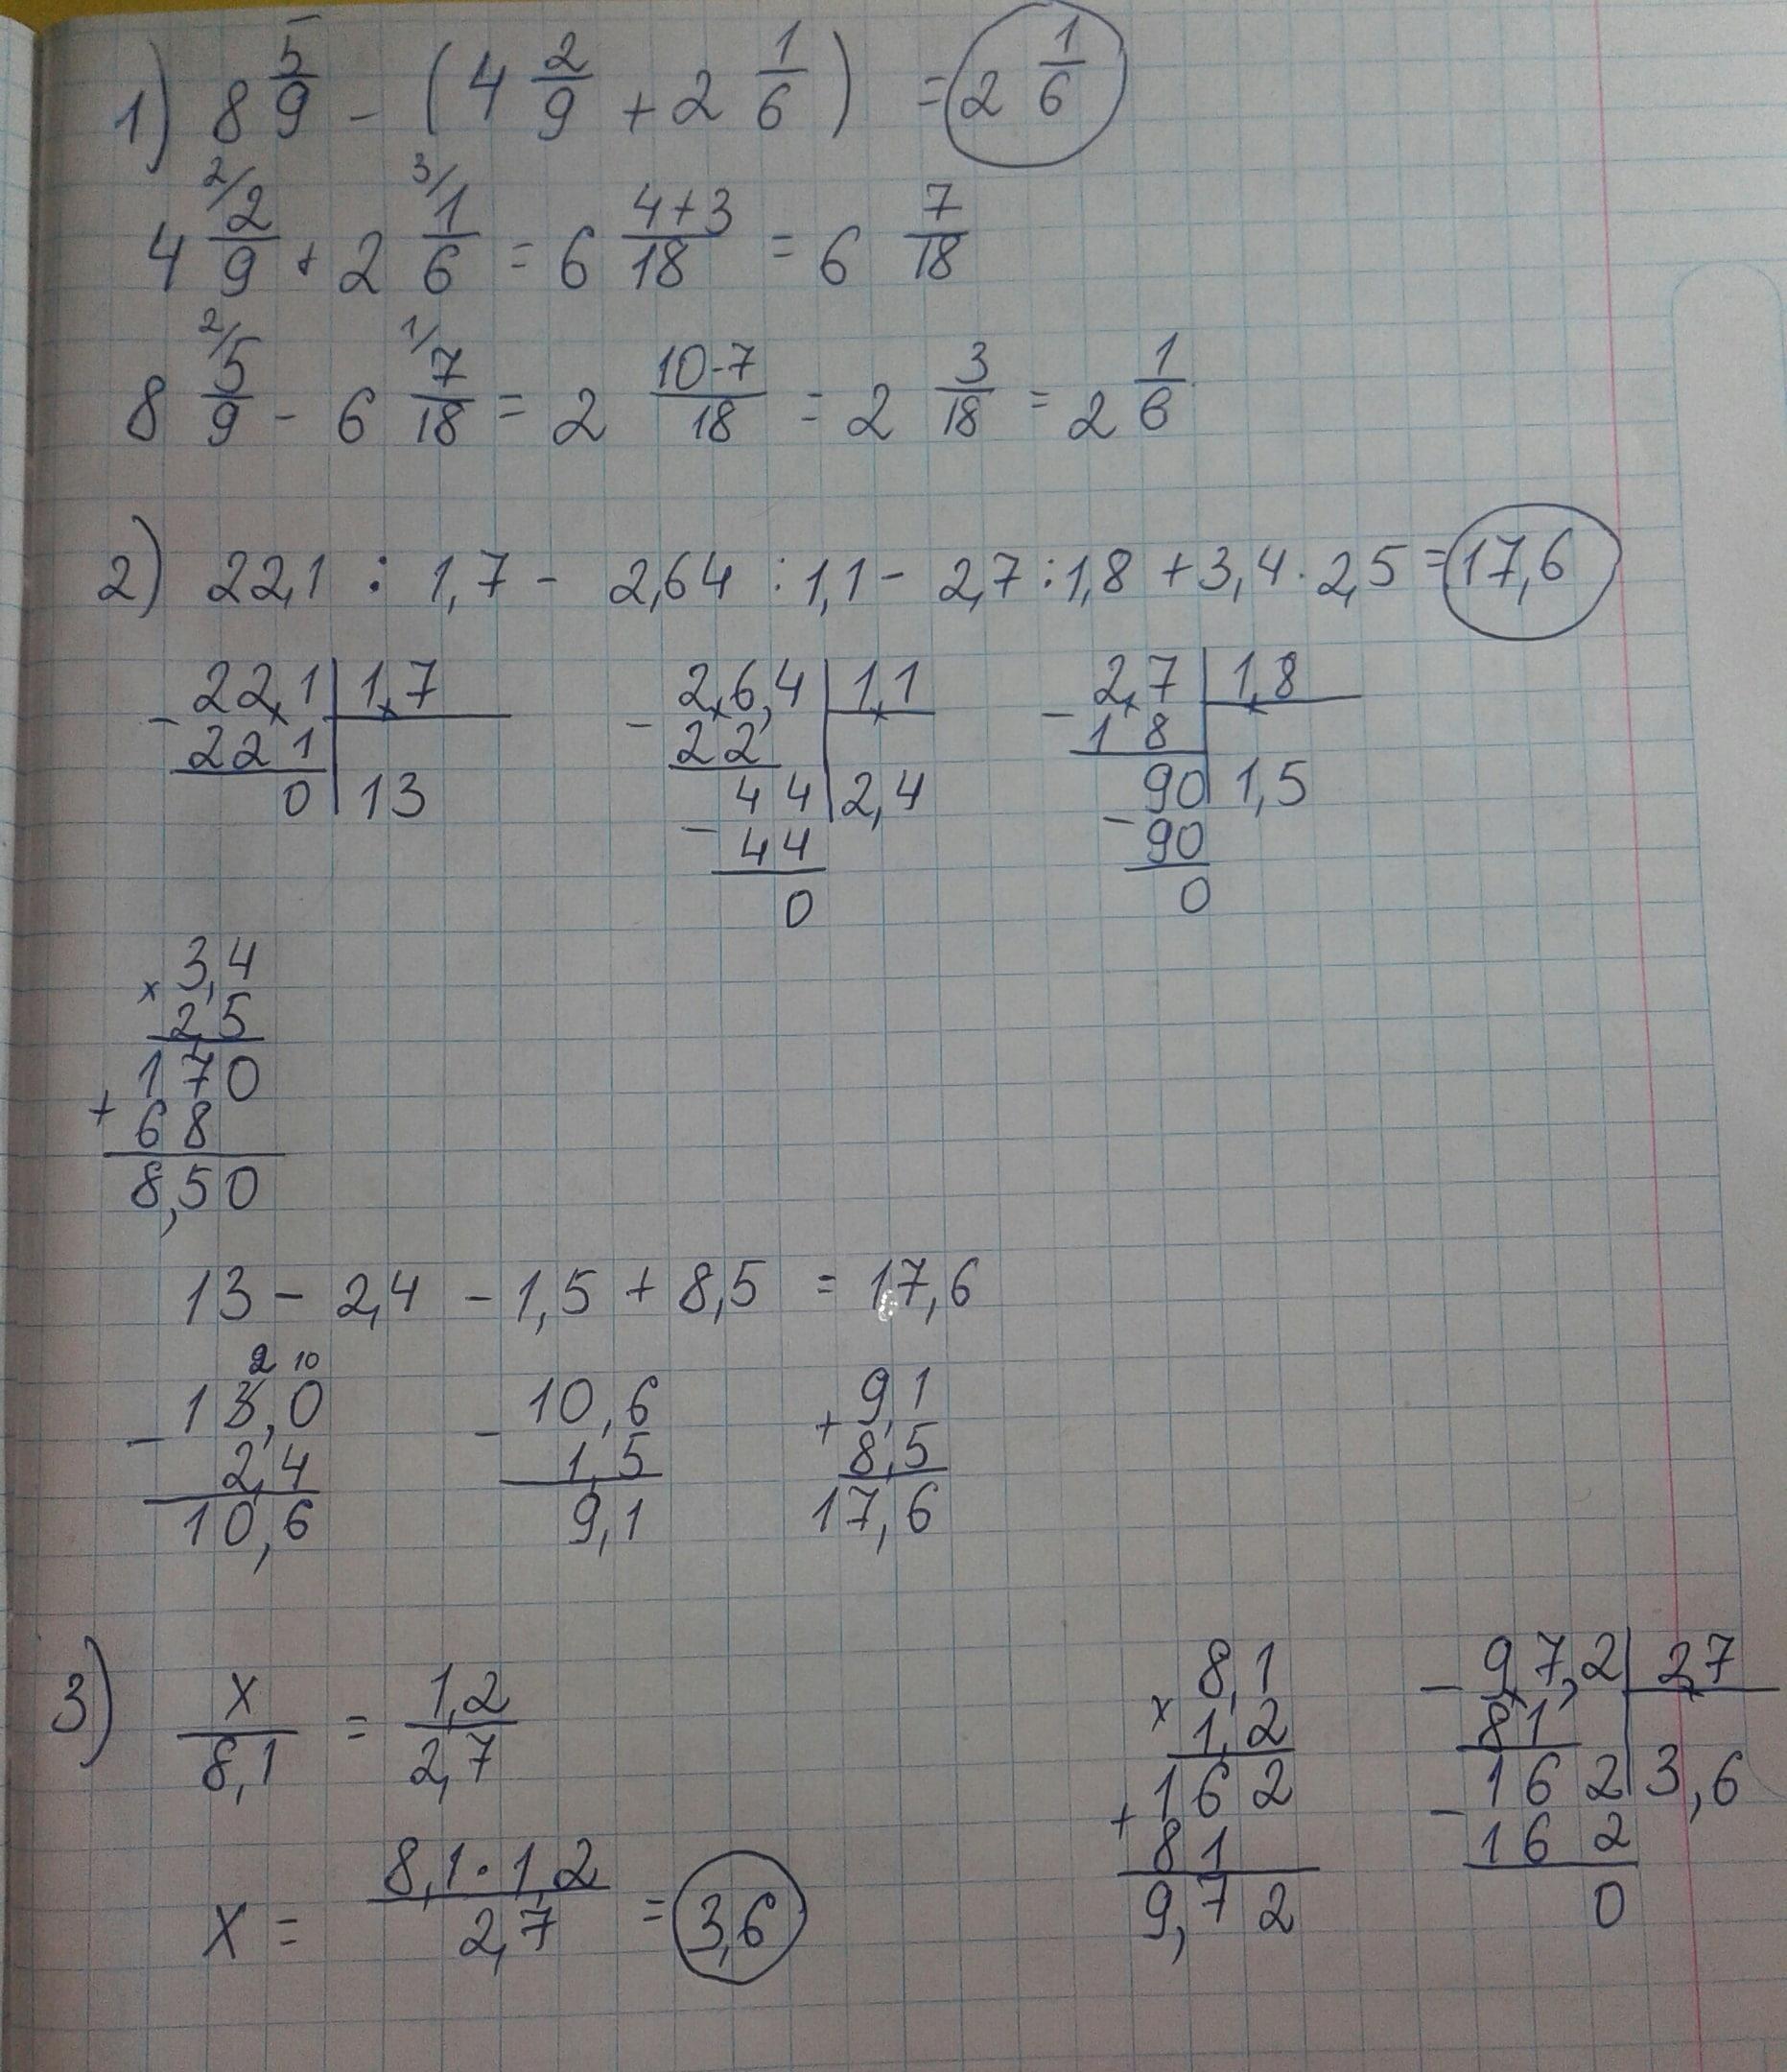 1) 8 5/9 - (4 2/9 + 2 1/6) = 2 1/6
4 2/9 + 2 1/6 = 6 (4+3)/18 = 6 7/18
8 5/9 - 6 7/18 = 2 (10-7)/18 = 2 3/18 = 2 1/6
2) 22,1 : 1,7 - 2,64 : 1,1 - 2,7 : 1,8 + 3,4 · 2,5 = 17,6
- 22,1 | 1,7
221
0 | 13
- 2,6,4 | 1,1
22
44 | 2,4
- 44
0
- 2,7 | 1,8
18
90 | 1,5
- 90
0
× 3,4
2,5
170
+ 68
8,50
13 - 2,4 - 1,5 + 8,5 = 17,6
2 10
- 13,0
2,4
10,6
- 10,6
1,5
9,1
+ 9,1
8,5
17,6
3) x/8,1 = 1,2/2,7
x = 8,1 · 1,2/2,7 = 3,6
× 8,1
1,2
162
+ 81
9,72
- 9,7,2 | 2,7
81
162 | 3,6
- 162
0